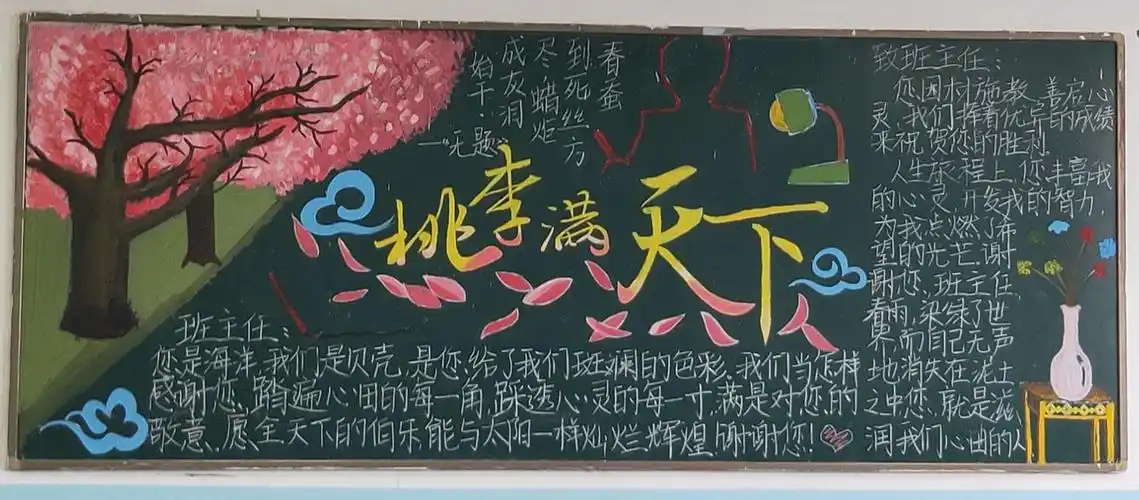 春蚕
到死丝方
尽 蜡炬
成灰泪
始干·
—“无题”
桃李满天下
班主任:
您是海洋,我们是贝壳,是您给了我们斑斓的色彩,我们当怎样
感谢您,踏遍心田的每一角,踩透心灵的每一寸,满是对您的
敬意,愿全天下的伯乐能与太阳一样灿烂辉煌!谢谢您!
致班主任:
您因材施教,善启心
灵,我们挥着优异的成绩
来祝贺您的胜利
人生旅程上,您丰富我
的心灵,开发我的智力,
为我点燃了希
望的光芒,谢
谢您,班主任,
春雨,染绿了世
界,而自己无声
地消失在泥土
之中,您就是滋
润我们心田的人